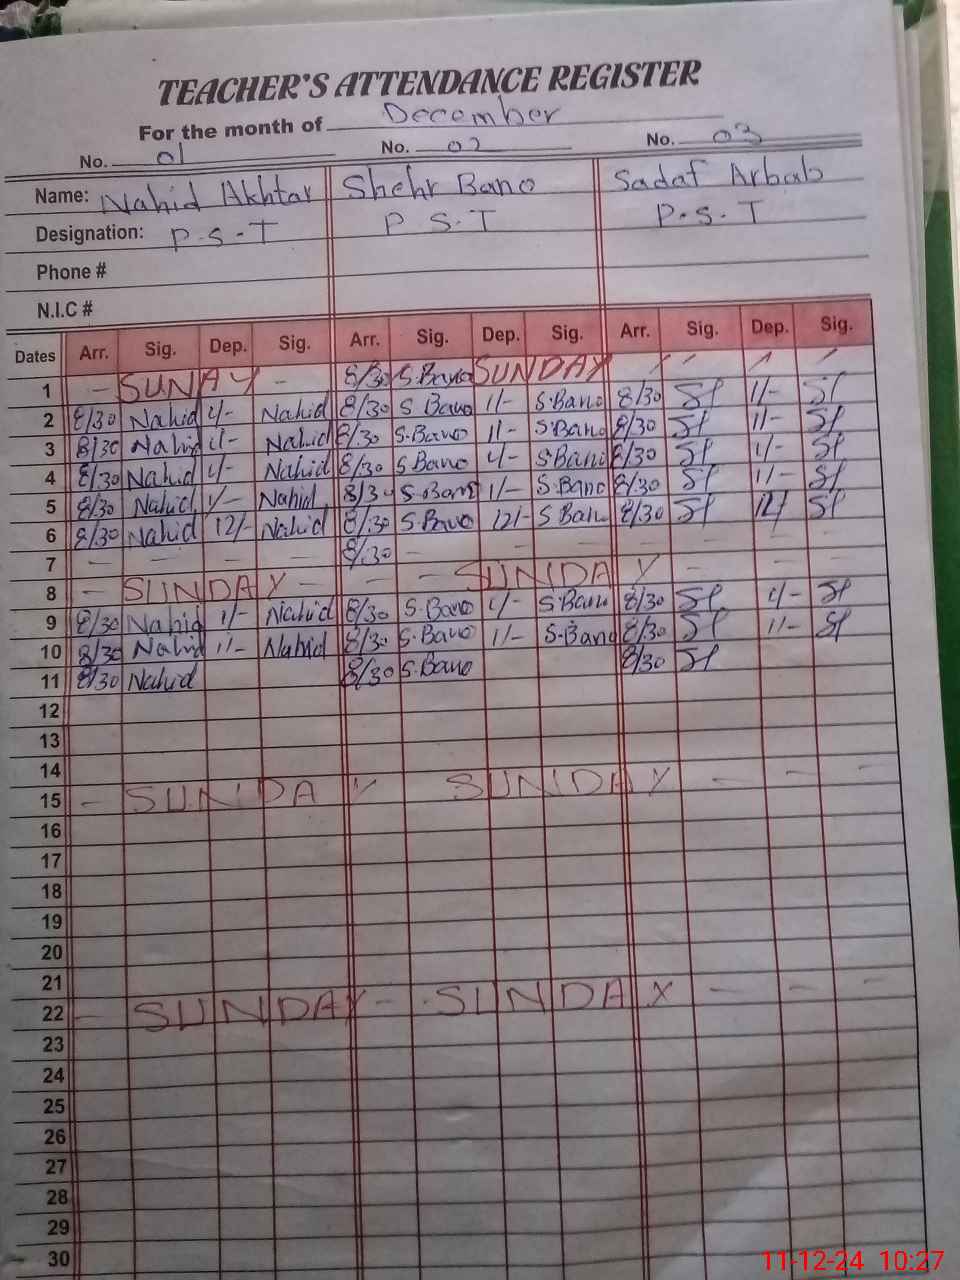 TEACHER'S ATTENDANCE REGISTER
For the month of December
No. 01 No. 02 No. 03
Name: Nahid Akhtar Shehr Bano Sadaf Arbab
Designation: P.S.T P.S.T P.S.T
Phone #
N.I.C #
Dates Arr. Sig. Dep. Sig. Arr. Sig. Dep. Sig. Arr. Sig. Dep. Sig.
1 - SUNAY - 8/30 S.Bano SUNDAY
2 8/30 Nahid 1/- Nahid 8/30 S Bano 1/- S.Bano 8/30 1/-
3 8/30 Nahid 1/- Nahid 8/30 S.Bano 1/- S.Bano 8/30 1/-
4 8/30 Nahid 1/- Nahid 8/30 S Bano 1/- S.Bano 8/30 1/-
5 8/30 Nahid 1/- Nahid 8/30 S.Bano 1/- S.Bano 8/30 1/-
6 8/30 Nahid 12/- Nahid 8/30 S.Bano 12/- S Bano 8/30 12/
7 - - - - 8/30 - - - - - - -
8 - SUNDAY - - - SUNDAY - - -
9 8/30 Nahid 1/- Nahid 8/30 S.Bano 1/- S.Bano 8/30 1/-
10 8/30 Nahid 1/- Nahid 8/30 S.Bano 1/- S.Bano 8/30 1/-
11 8/30 Nahid 8/30 S.Bano 8/30
12
13
14
15 - SUNDAY SUNDAY - - -
16
17
18
19
20
21
22 - SUNDAY - SUNDAY - - -
23
24
25
26
27
28
29
30
11-12-24 10:27